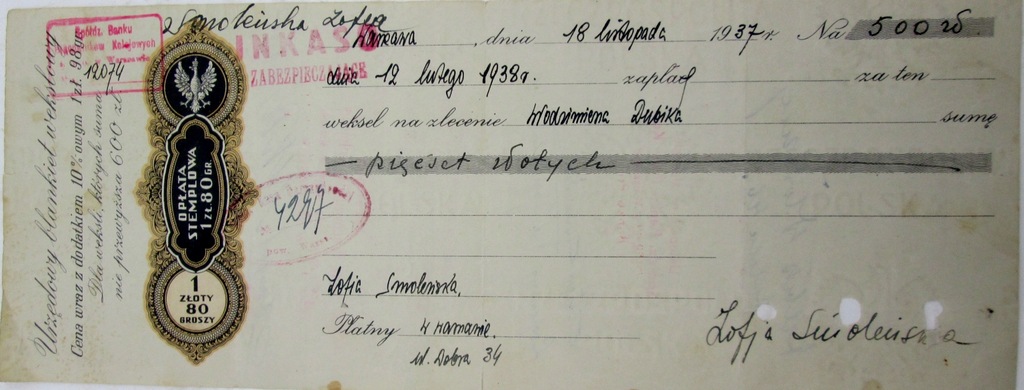 Smoleńska Zofja
Warszawa, dnia 18 listopada 1937 r. Na 500 zł.
INKASO
ZABEZPIECZAJĄCE
dnia 12 lutego 1938 r. zapłacę za ten
weksel na zlecenie Włodzimierza Dubika sumę
— pięćset złotych —
Zofja Smoleńska,
Płatny w Warszawie.
ul. Dobra 34
Zofja Smoleńska
Urzędowy blankiet wekslowy
Cena wraz z dodatkiem 10% owym 1 zł. 98 gr.
Dla weksli, których suma
nie przewyższa 600 zł.
Spółdz. Banku
Kolejowych
w Warszawie
12074
OPŁATA
STEMPLOWA
1 ZŁ. 80 GR.
1
ZŁOTY
80
GROSZY
4297